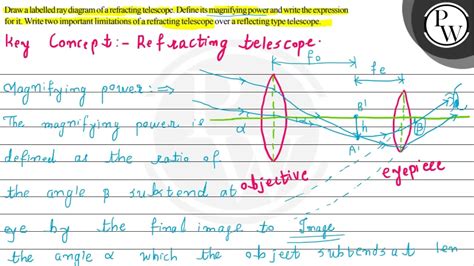 Draw a labelled ray diagram of a refracting telescope. Define its magnifying power and write the expression
for it. Write two important limitations of a refracting telescope over a reflecting type telescope.
PW
Key Concept:- Refracting telescope.
fo
fe
Magnifying power:⇒
The magnifying power is
α
B'
h
A'
β
defined as the ratio of
the angle β subtend at
objective
eyepiece
eye by the final image to Image
the angle α which the object subtends at len